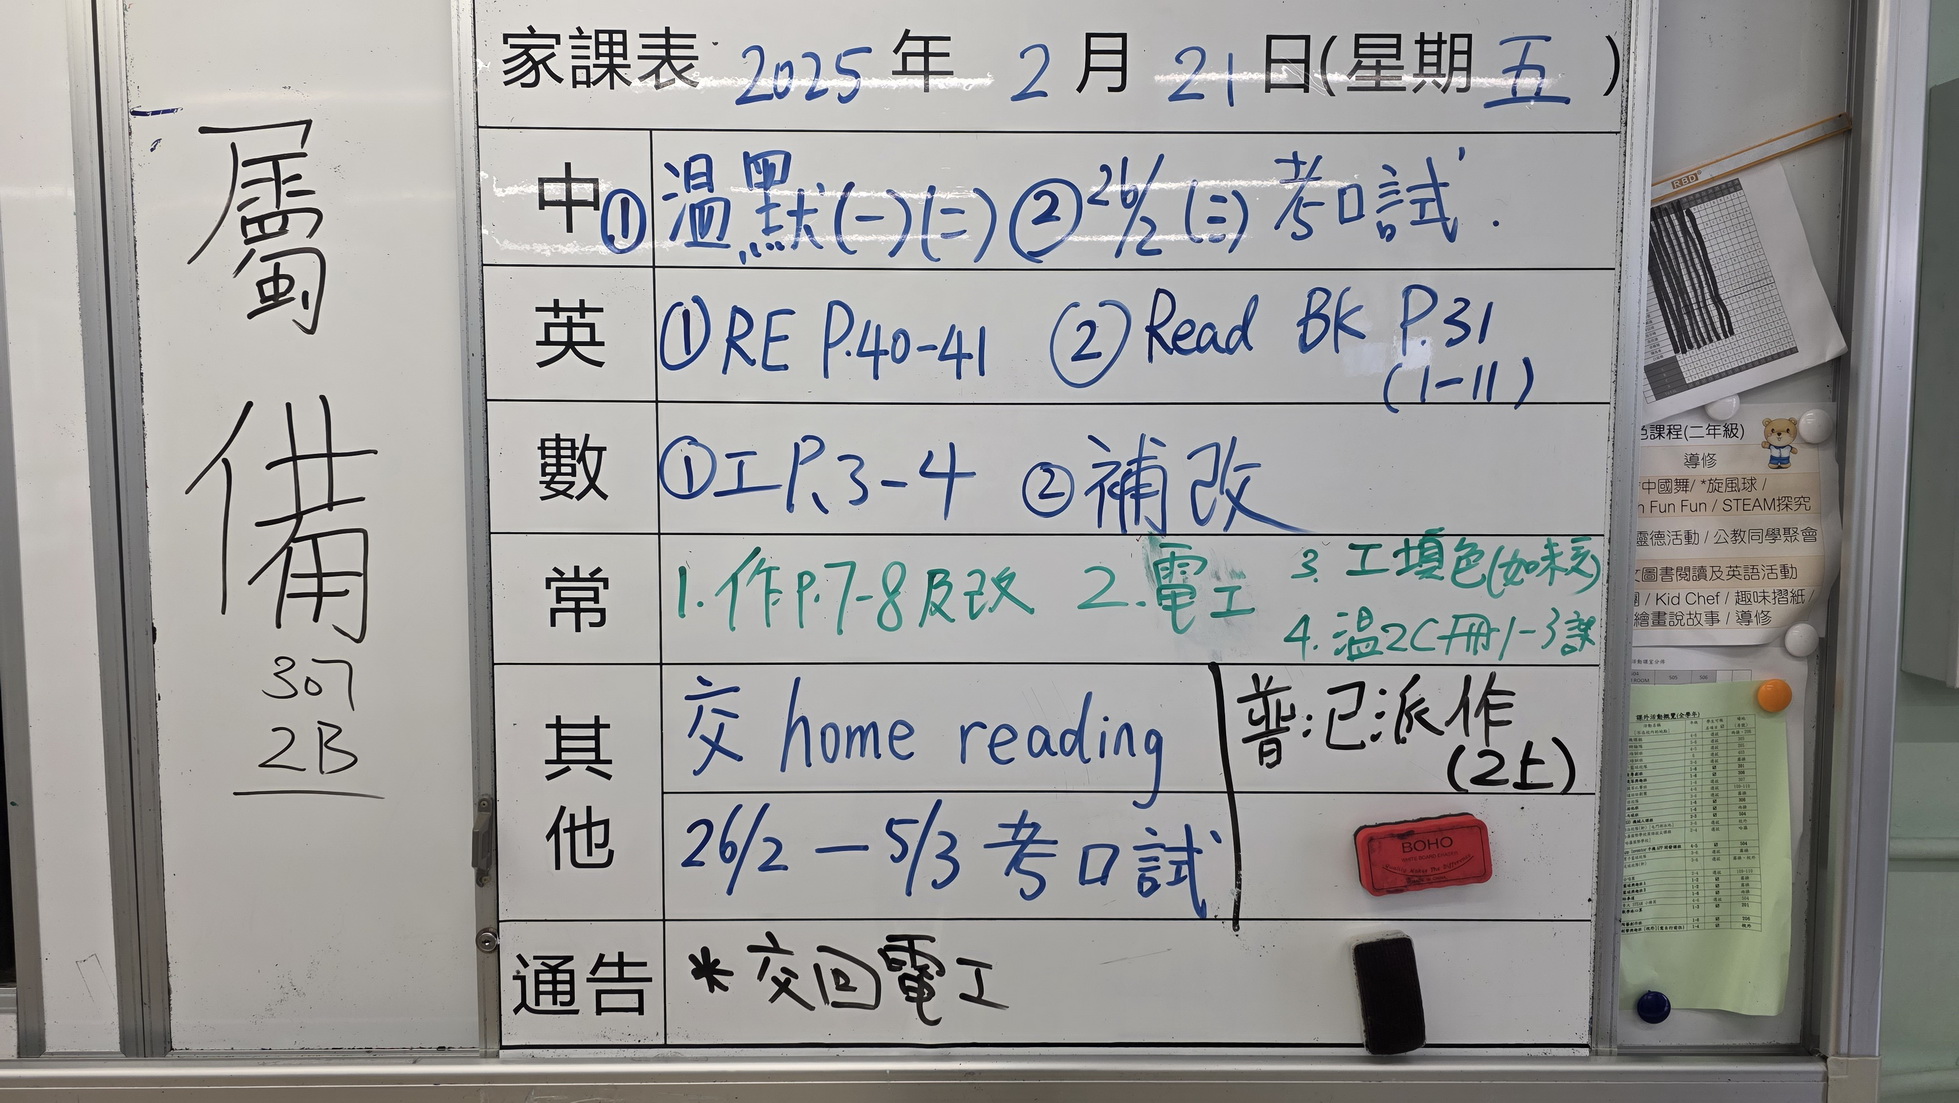 家課表 2025年 2月 21日(星期五)
屬
備
307
2B
中 ①温默(一)(二) ②26/2 (三) 考口試.
英 ①RE P.40-41 ②Read BK P.31
(1-11)
數 ①工P.3-4 ②補改
常 1.作P.7-8及改 2.電工 3.工填色(如未交)
4.温2C冊1-3課
其他
交 home reading
普:已派作
(2上)
26/2 — 5/3 考口試
BOHO
通告 *交回電工
RBD
色課程(二年級)
導修
*中國舞/ *旋風球 /
n Fun Fun / STEAM探究
靈德活動 / 公教同學聚會
文圖書閱讀及英語活動
/ Kid Chef / 趣味摺紙 /
繪畫說故事 / 導修
課外活動概覽(全學年)